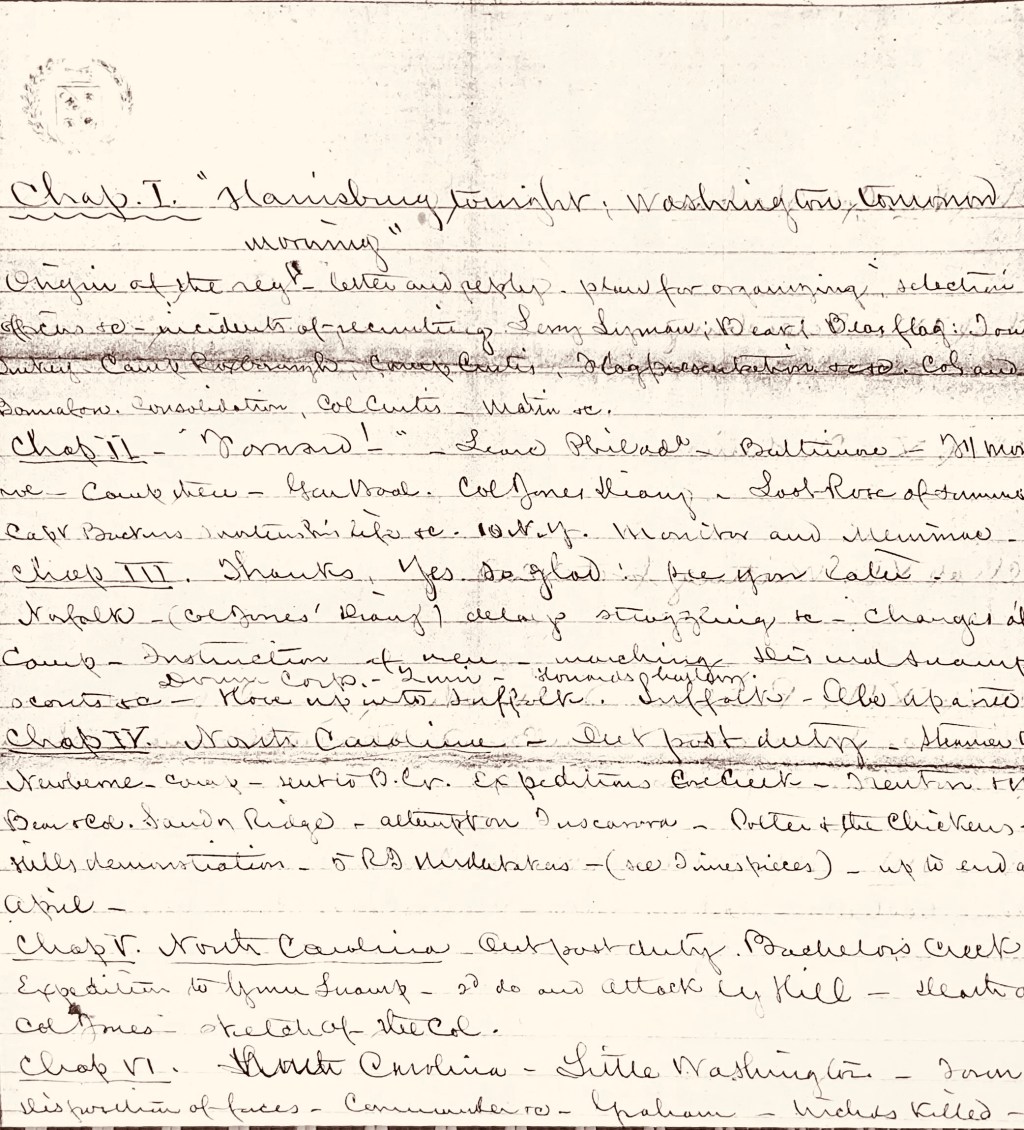 Chap. I. "Harrisburg tonight; Washington, tomorrow
morning"
Origin of the regt - letter and reply - plan for organizing, selection
officers &c - incidents of recruiting Bear flag:
Turkey - Camp Roxborough, Camp Curtis, Flag presentation &c &c. Col and
Donnalow. Consolidation, Col Curtis - &c.
Chap II - "Forward!" - Leave Philada - Baltimore -
- Camp there - Gen Wool. Col Jones Diary - Last Rose of Summer
Capt Backus life &c. 10 N.Y. Monitor and Merrimac -
Chap III. Thanks, Yes so glad! See you later.
Nofolk - (Col Jones' Diary) delays straggling &c - Changes of
Camp - Instruction of men - marching Dismal Swamp
Drum Corp. -
scouts &c - Move up into Suffolk. Suffolk -
Chap IV. North Carolina - Outpost duty -
Newberne - camp - sent to B. Cr. Expeditions Creek - Trenton
Bear & Col. Sandy Ridge - attempt on Tuscarora - Potter & the Chickens -
Hills demonstration - 5 R I - (see Timespieces) - up to end of
April -
Chap V. North Carolina Outpost duty. Bachelors Creek
Expedition to Gum Swamp - 2d do and attack by Hill - Death of
Col Jones - sketch of the Col.
Chap VI. North Carolina - Little Washington -
Disposition of forces - Commander &c - Graham - Nichols killed -